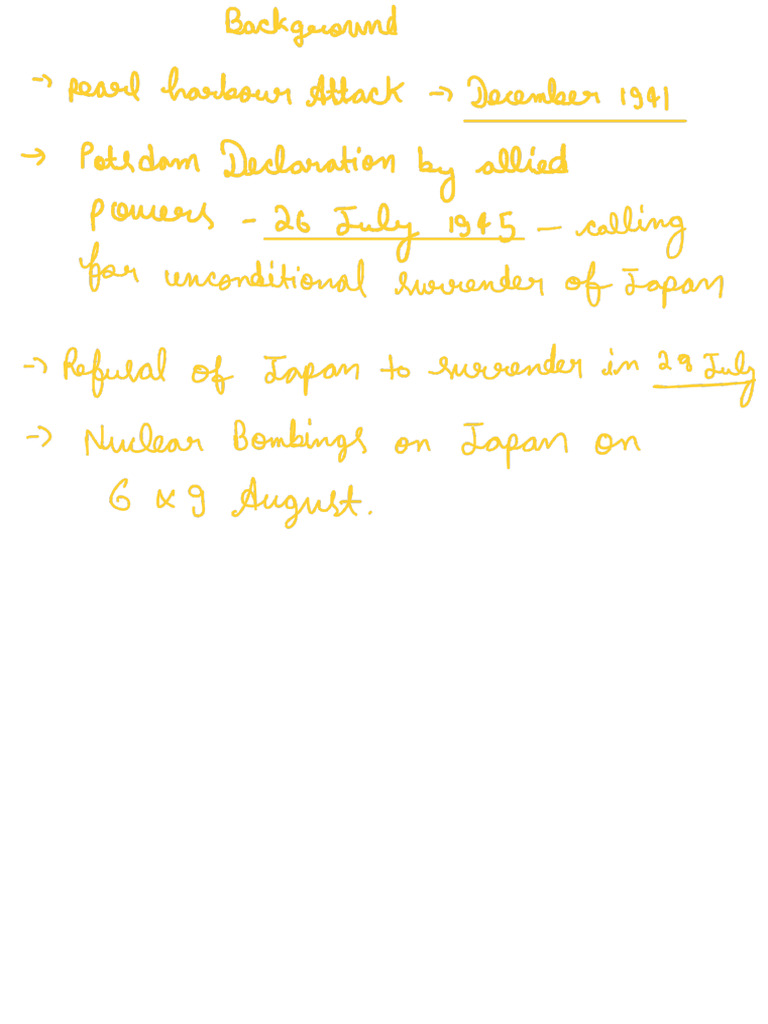 Background
→ pearl harbour Attack → December 1941
→ Potsdam Declaration by allied
powers - 26 July 1945 - calling
for unconditional surrender of Japan
→ Refusal of Japan to surrender in 28 July
→ Nuclear Bombings on Japan on
6 & 9 August.